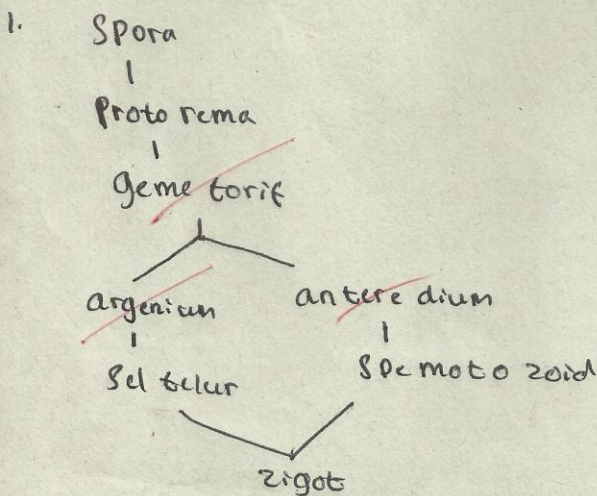 1. Spora
Proto rema
geme torif
argenium antere dium
Sel telur Spemoto zoid
zigot